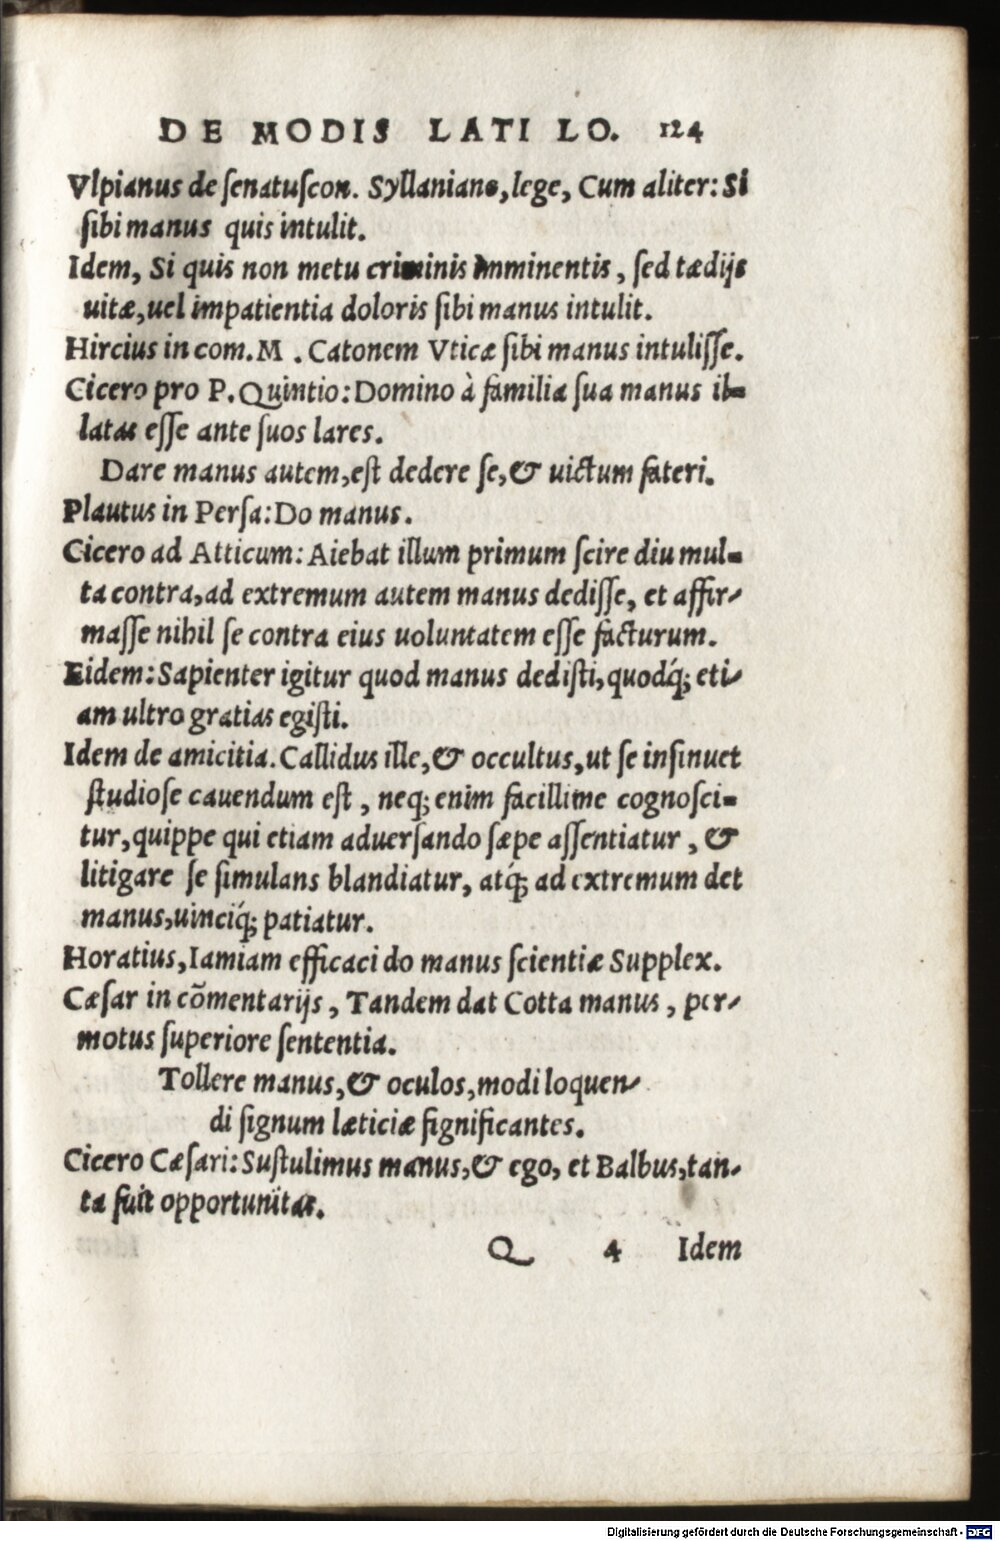 DE MODIS LATI LO. 124
Vlpianus de ſenatuſcon. Syllaniano, lege, Cum aliter: Si
ſibi manus quis intulit.
Idem, Si quis non metu criminis imminentis, ſed tædijs
uitæ, uel impatientia doloris ſibi manus intulit.
Hircius in com. M. Catonem Vticæ ſibi manus intuliſſe.
Cicero pro P. Quintio: Domino à familia ſua manus il-
latas eſſe ante ſuos lares.
Dare manus autem, eſt dedere ſe, & uictum fateri.
Plautus in Perſa: Do manus.
Cicero ad Atticum: Aiebat illum primum ſcire diu mul-
ta contra, ad extremum autem manus dediſſe, et affir-
maſſe nihil ſe contra eius uoluntatem eſſe facturum.
Eidem: Sapienter igitur quod manus dediſti, quodq́; eti-
am ultro gratias egiſti.
Idem de amicitia. Callidus ille, & occultus, ut ſe inſinuet
ſtudioſe cauendum eſt, neq; enim facillime cognoſci-
tur, quippe qui etiam aduerſando ſæpe aſſentiatur, &
litigare ſe ſimulans blandiatur, atq́; ad extremum det
manus, uinciq́; patiatur.
Horatius, Iamiam efficaci do manus ſcientiæ Supplex.
Cæſar in cõmentarijs, Tandem dat Cotta manus, per-
motus ſuperiore ſententia.
Tollere manus, & oculos, modi loquen-
di ſignum læticiæ ſignificantes.
Cicero Cæſari: Suſtulimus manus, & ego, et Balbus, tan-
ta fuit opportunitas.
Q 4 Idem
Digitalisierung gefördert durch die Deutsche Forschungsgemeinschaft - DFG